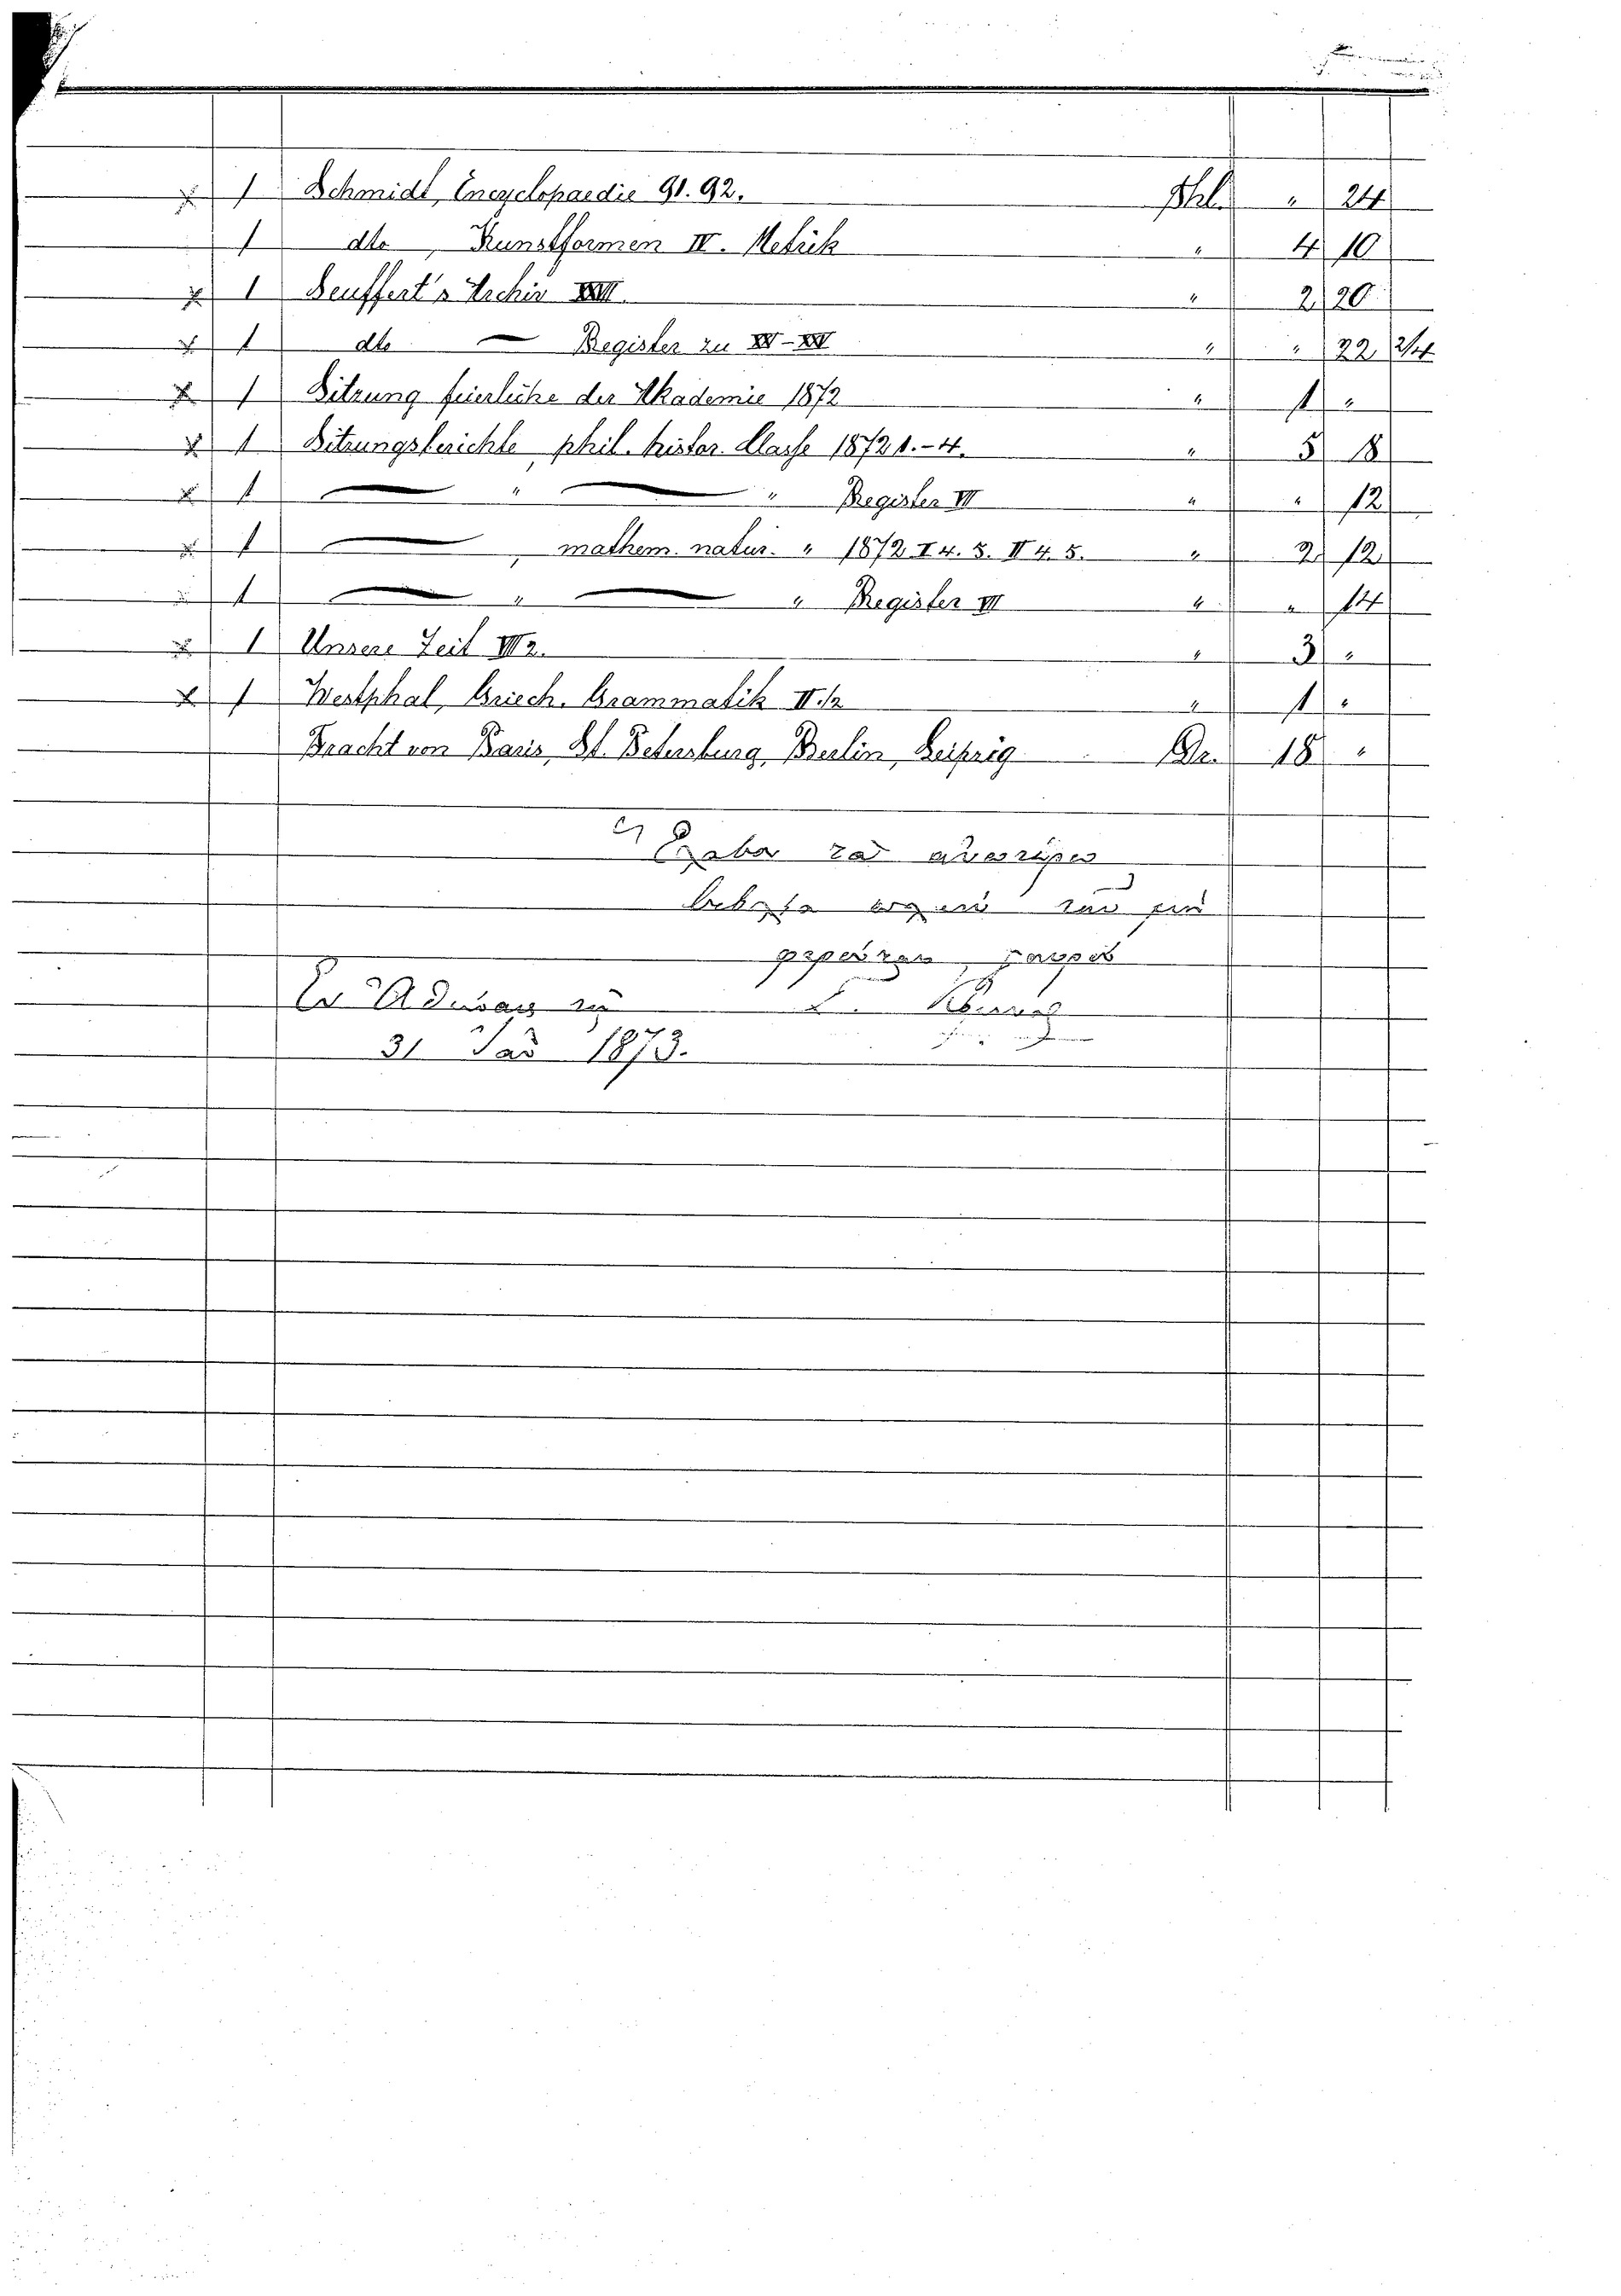 x 1 Schmidt, Encyclopaedie 91. 92. Thl. " 24
1 dto , Kunstformen IV. Metrik " 4 10
x 1 Seuffert's Archiv XXVII. " 2 20
x 1 dto — Register zu " " 22 2/4
x 1 Sitzung feierliche der Akademie 1872 " 1 "
x 1 Sitzungsberichte, phil. histor. Classe 1872 1.-4. " 5 18
x 1 — " — " Register VII " " 12
x 1 — , mathem. natur. " 1872 I 4. 5. II 4. 5. " 2 12
x 1 — " — " Register VII " " 14
x 1 Unsere Zeit VIII 2. " 3 "
x 1 Westphal, Griech. Grammatik II. 1/2 " 1 "
Fracht von Paris, St. Petersburg, Berlin, Leipzig Dr. 18 "
Ἔλαβα τὰ ἀνωτέρω
βιβλία
Ἐν Ἀθήναις τῇ
31 1873.